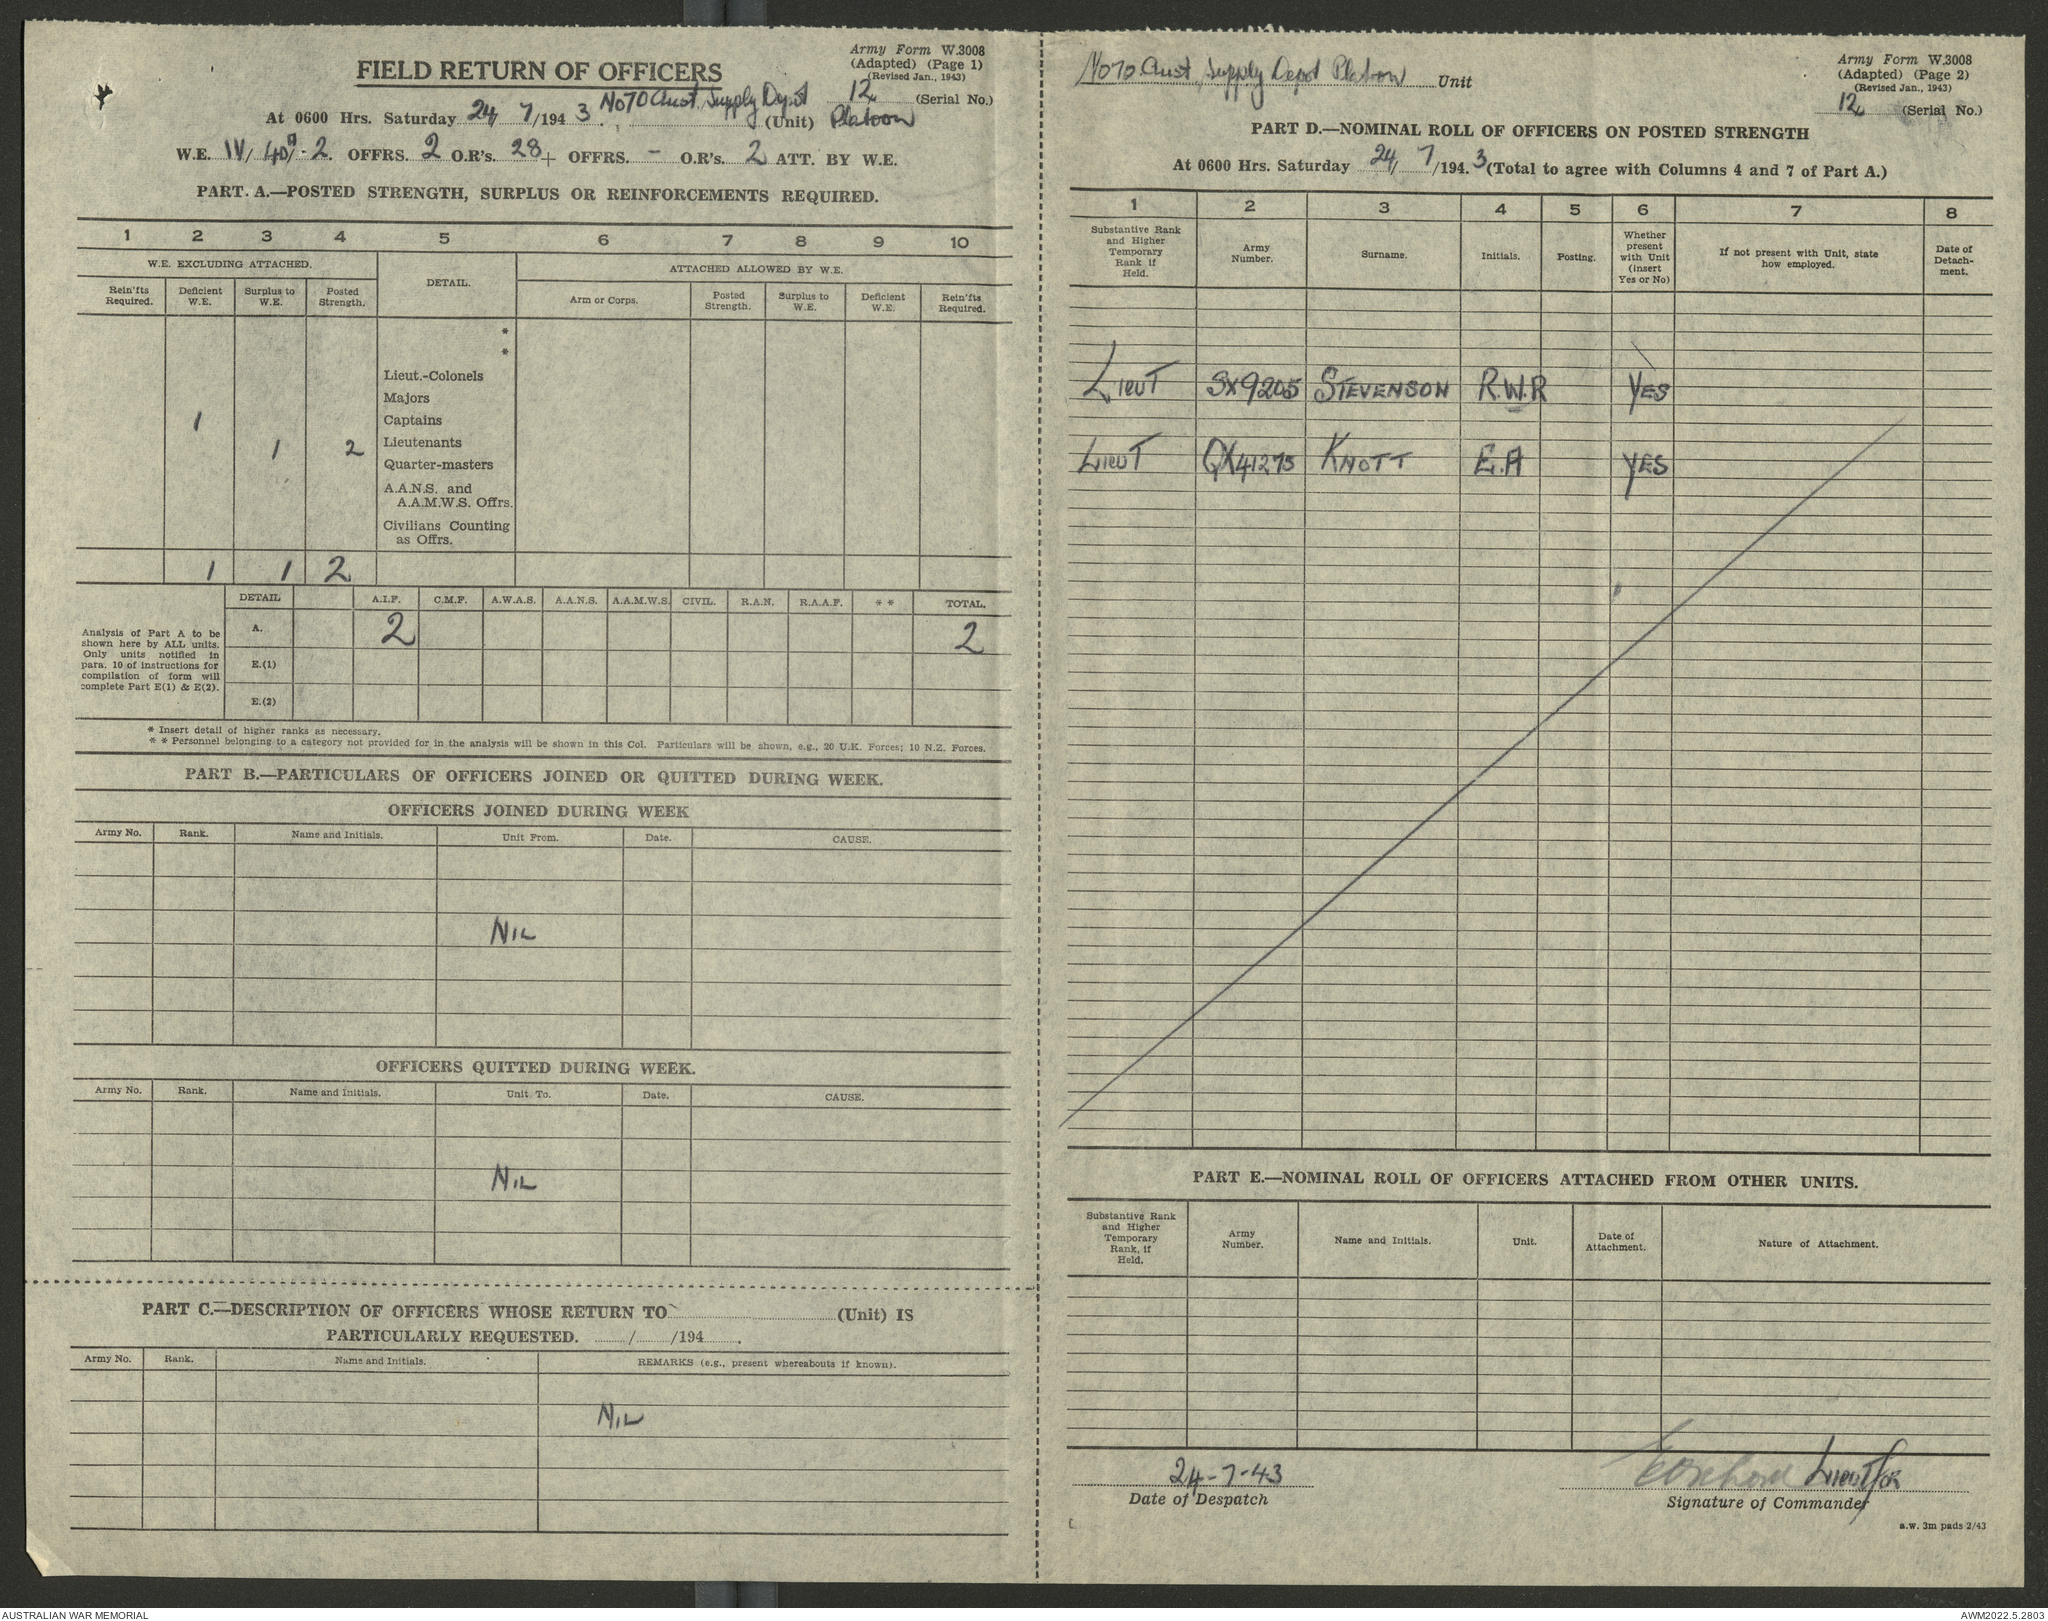 Army Form W.3008
(Adapted) (Page 1)
(Revised Jan., 1943)
FIELD RETURN OF OFFICERS
12 (Serial No.)
At 0600 Hrs. Saturday 24/7/1943. No 70 Aust. Supply Depot (Unit) Platoon
W.E. IV/ 40A/-2. OFFRS. 2 O.R's. 28 + OFFRS. - O.R's. 2 ATT. BY W.E.
PART. A.—POSTED STRENGTH, SURPLUS OR REINFORCEMENTS REQUIRED.
1 2 3 4 5 6 7 8 9 10
W.E. EXCLUDING ATTACHED. DETAIL. ATTACHED ALLOWED BY W.E.
Rein'fts Required. Deficient W.E. Surplus to W.E. Posted Strength. Arm or Corps. Posted Strength. Surplus to W.E. Deficient W.E. Rein'fts Required.
*
*
Lieut.-Colonels
Majors
1 Captains
1 2 Lieutenants
Quarter-masters
A.A.N.S. and
A.A.M.W.S. Offrs.
Civilians Counting
as Offrs.
1 1 2
DETAIL A.I.F. C.M.F. A.W.A.S. A.A.N.S. A.A.M.W.S. CIVIL. R.A.N. R.A.A.F. * * TOTAL.
Analysis of Part A to be
shown here by ALL units.
Only units notified in
para. 10 of instructions for
compilation of form will
complete Part E(1) & E(2).
A. 2 2
E.(1)
E.(2)
* Insert detail of higher ranks as necessary.
* * Personnel belonging to a category not provided for in the analysis will be shown in this Col. Particulars will be shown, e.g., 20 U.K. Forces; 10 N.Z. Forces.
PART B.—PARTICULARS OF OFFICERS JOINED OR QUITTED DURING WEEK.
OFFICERS JOINED DURING WEEK
Army No. Rank. Name and Initials. Unit From. Date. CAUSE.
NIL
OFFICERS QUITTED DURING WEEK.
Army No. Rank. Name and Initials. Unit To. Date. CAUSE.
NIL
PART C.—DESCRIPTION OF OFFICERS WHOSE RETURN TO (Unit) IS
PARTICULARLY REQUESTED. / /194 .
Army No. Rank. Name and Initials. REMARKS (e.g., present whereabouts if known).
NIL
Army Form W.3008
(Adapted) (Page 2)
(Revised Jan., 1943)
No 70 Aust. Supply Depot Platoon Unit
12 (Serial No.)
PART D.—NOMINAL ROLL OF OFFICERS ON POSTED STRENGTH
At 0600 Hrs. Saturday 24/7/1943 (Total to agree with Columns 4 and 7 of Part A.)
1 2 3 4 5 6 7 8
Substantive Rank and Higher Temporary Rank if Held. Army Number. Surname. Initials. Posting. Whether present with Unit (insert Yes or No) If not present with Unit, state how employed. Date of Detach-ment.
LIEUT SX9205 STEVENSON R.W.R YES
LIEUT QX41275 KNOTT E.A YES
PART E.—NOMINAL ROLL OF OFFICERS ATTACHED FROM OTHER UNITS.
Substantive Rank and Higher Temporary Rank, if Held. Army Number. Name and Initials. Unit. Date of Attachment. Nature of Attachment.
24-7-43
Date of Despatch
LIEUT FOR
Signature of Commander
a.w. 3m pads 2/43
AUSTRALIAN WAR MEMORIAL
AWM2022.5.2803